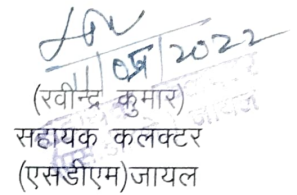 11/05/2022
(रवीन्द्र कुमार)
सहायक कलक्टर
(एसडीएम)जायल